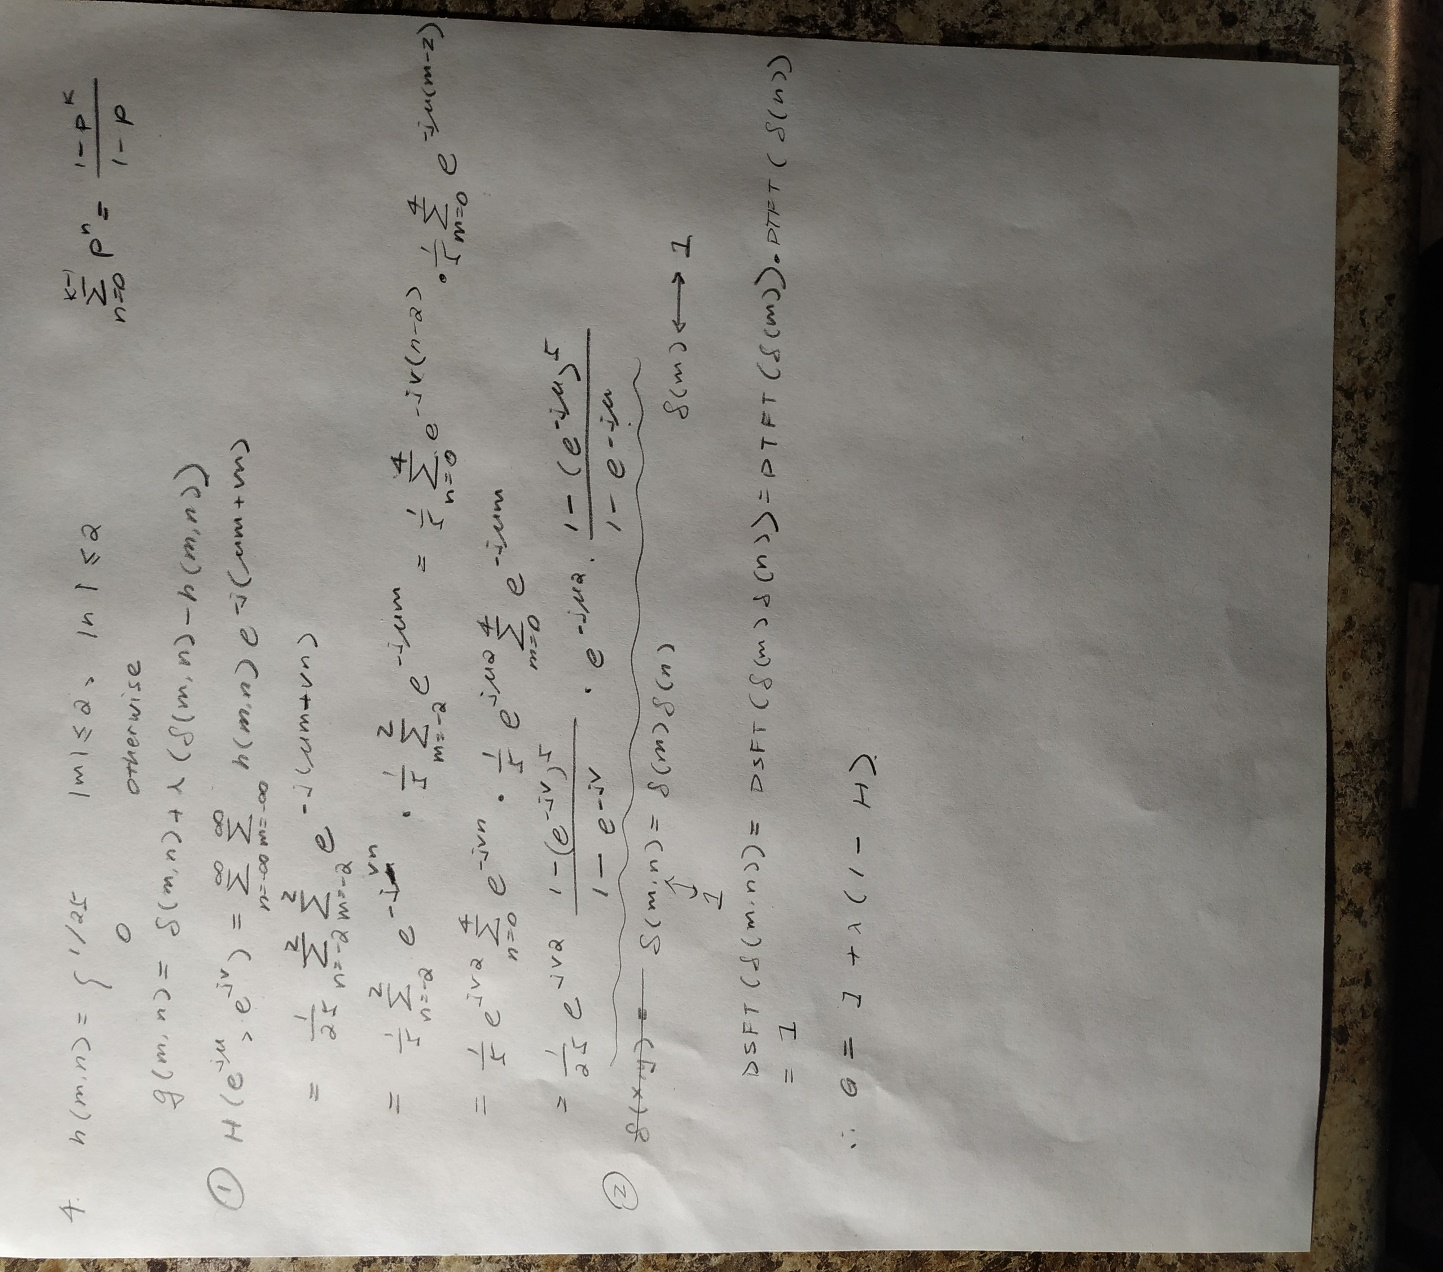 4. h(m,n) = { 1/25 |m|≤2, |n|≤2
0 otherwise
∑_{n=0}^{k-1} p^n = (1-p^k)/(1-p)
g(m,n) = δ(m,n) + λ(δ(m,n) - h(m,n))
① H(e^{jμ}, e^{jν}) = ∑_{n=-∞}^{∞} ∑_{m=-∞}^{∞} h(m,n) e^{-j(μm+νn)}
= 1/25 ∑_{n=-2}^{2} ∑_{m=-2}^{2} e^{-j(μm+νn)}
= 1/5 ∑_{n=-2}^{2} e^{-jνn} · 1/5 ∑_{m=-2}^{2} e^{-jμm} = 1/5 ∑_{n=0}^{4} e^{-jν(n-2)} · 1/5 ∑_{m=0}^{4} e^{-jμ(m-2)}
= 1/5 e^{jν2} ∑_{n=0}^{4} e^{-jνn} · 1/5 e^{jμ2} ∑_{m=0}^{4} e^{-jμm}
= 1/25 e^{-jν2} (1-(e^{-jν})^5)/(1-e^{-jν}) · e^{-jμ2} · (1-(e^{-jμ})^5)/(1-e^{-jμ})
② δ(x,y) = δ(m,n) = δ(m)δ(n) δ(m) ⟷ 1
1
DSFT(δ(m,n)) = DSFT(δ(m)δ(n)) = DTFT(δ(m)) · DTFT(δ(n))
= 1
∴ G = 1 + λ(1 - H)